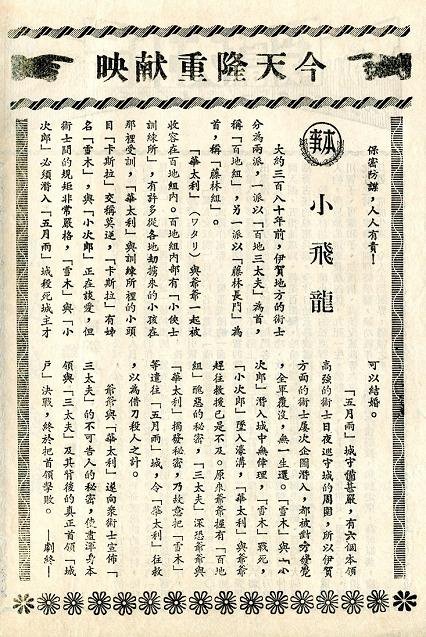 今天隆重献映
保密防諜,人人有責!
本事
小飛龍
大約三百八十年前,伊賀地方的術士
分為兩派,一派以「百地三太夫」為首,
稱「百地組」,另一派以「藤林長門」為
首,稱「藤林組」。
「華太利」(ワタリ)與爺爺一起被
收容在百地組內。百地組內部有「小俠士
訓練所」,有許多從各地刼擄來的小孩在
那裡受訓,「華太利」與訓練所裡的小頭
目「卡斯拉」交稱莫逆,「卡斯拉」有姊
名「雪木」,與「小次郎」正在談愛,但
術士間的規矩非常嚴格,「雪木」與「小
次郎」必須潛入「五月雨」城殺死城主才
可以結婚。
「五月雨」城守備甚嚴,有六個本領
高強的術士日夜巡守城的周圍,所以伊賀
方面的術士屢次企圖潛入,都被對方發覺
,全軍覆沒,無一生還。「雪木」與「小
次郎」潛入城中無倖理,「雪木」戰死,
「小次郎」墜入濠溝,「華太利」與爺爺
趕往救援已是不及。原來爺爺握有「百地
組」醜惡的秘密,「三太夫」深恐爺爺與
「華太利」揭發秘密,乃故意把「雪木」
等遣往「五月雨」城,令「華太利」往救
,以為借刀殺人之計。
爺爺與「華太利」遂向衆術士宣佈「
三太夫」的不可告人的秘密,使盡渾身本
領與「三太夫」及其背後的真正首領「城
戶」決戰,終於把首領擊敗。 ——劇終——